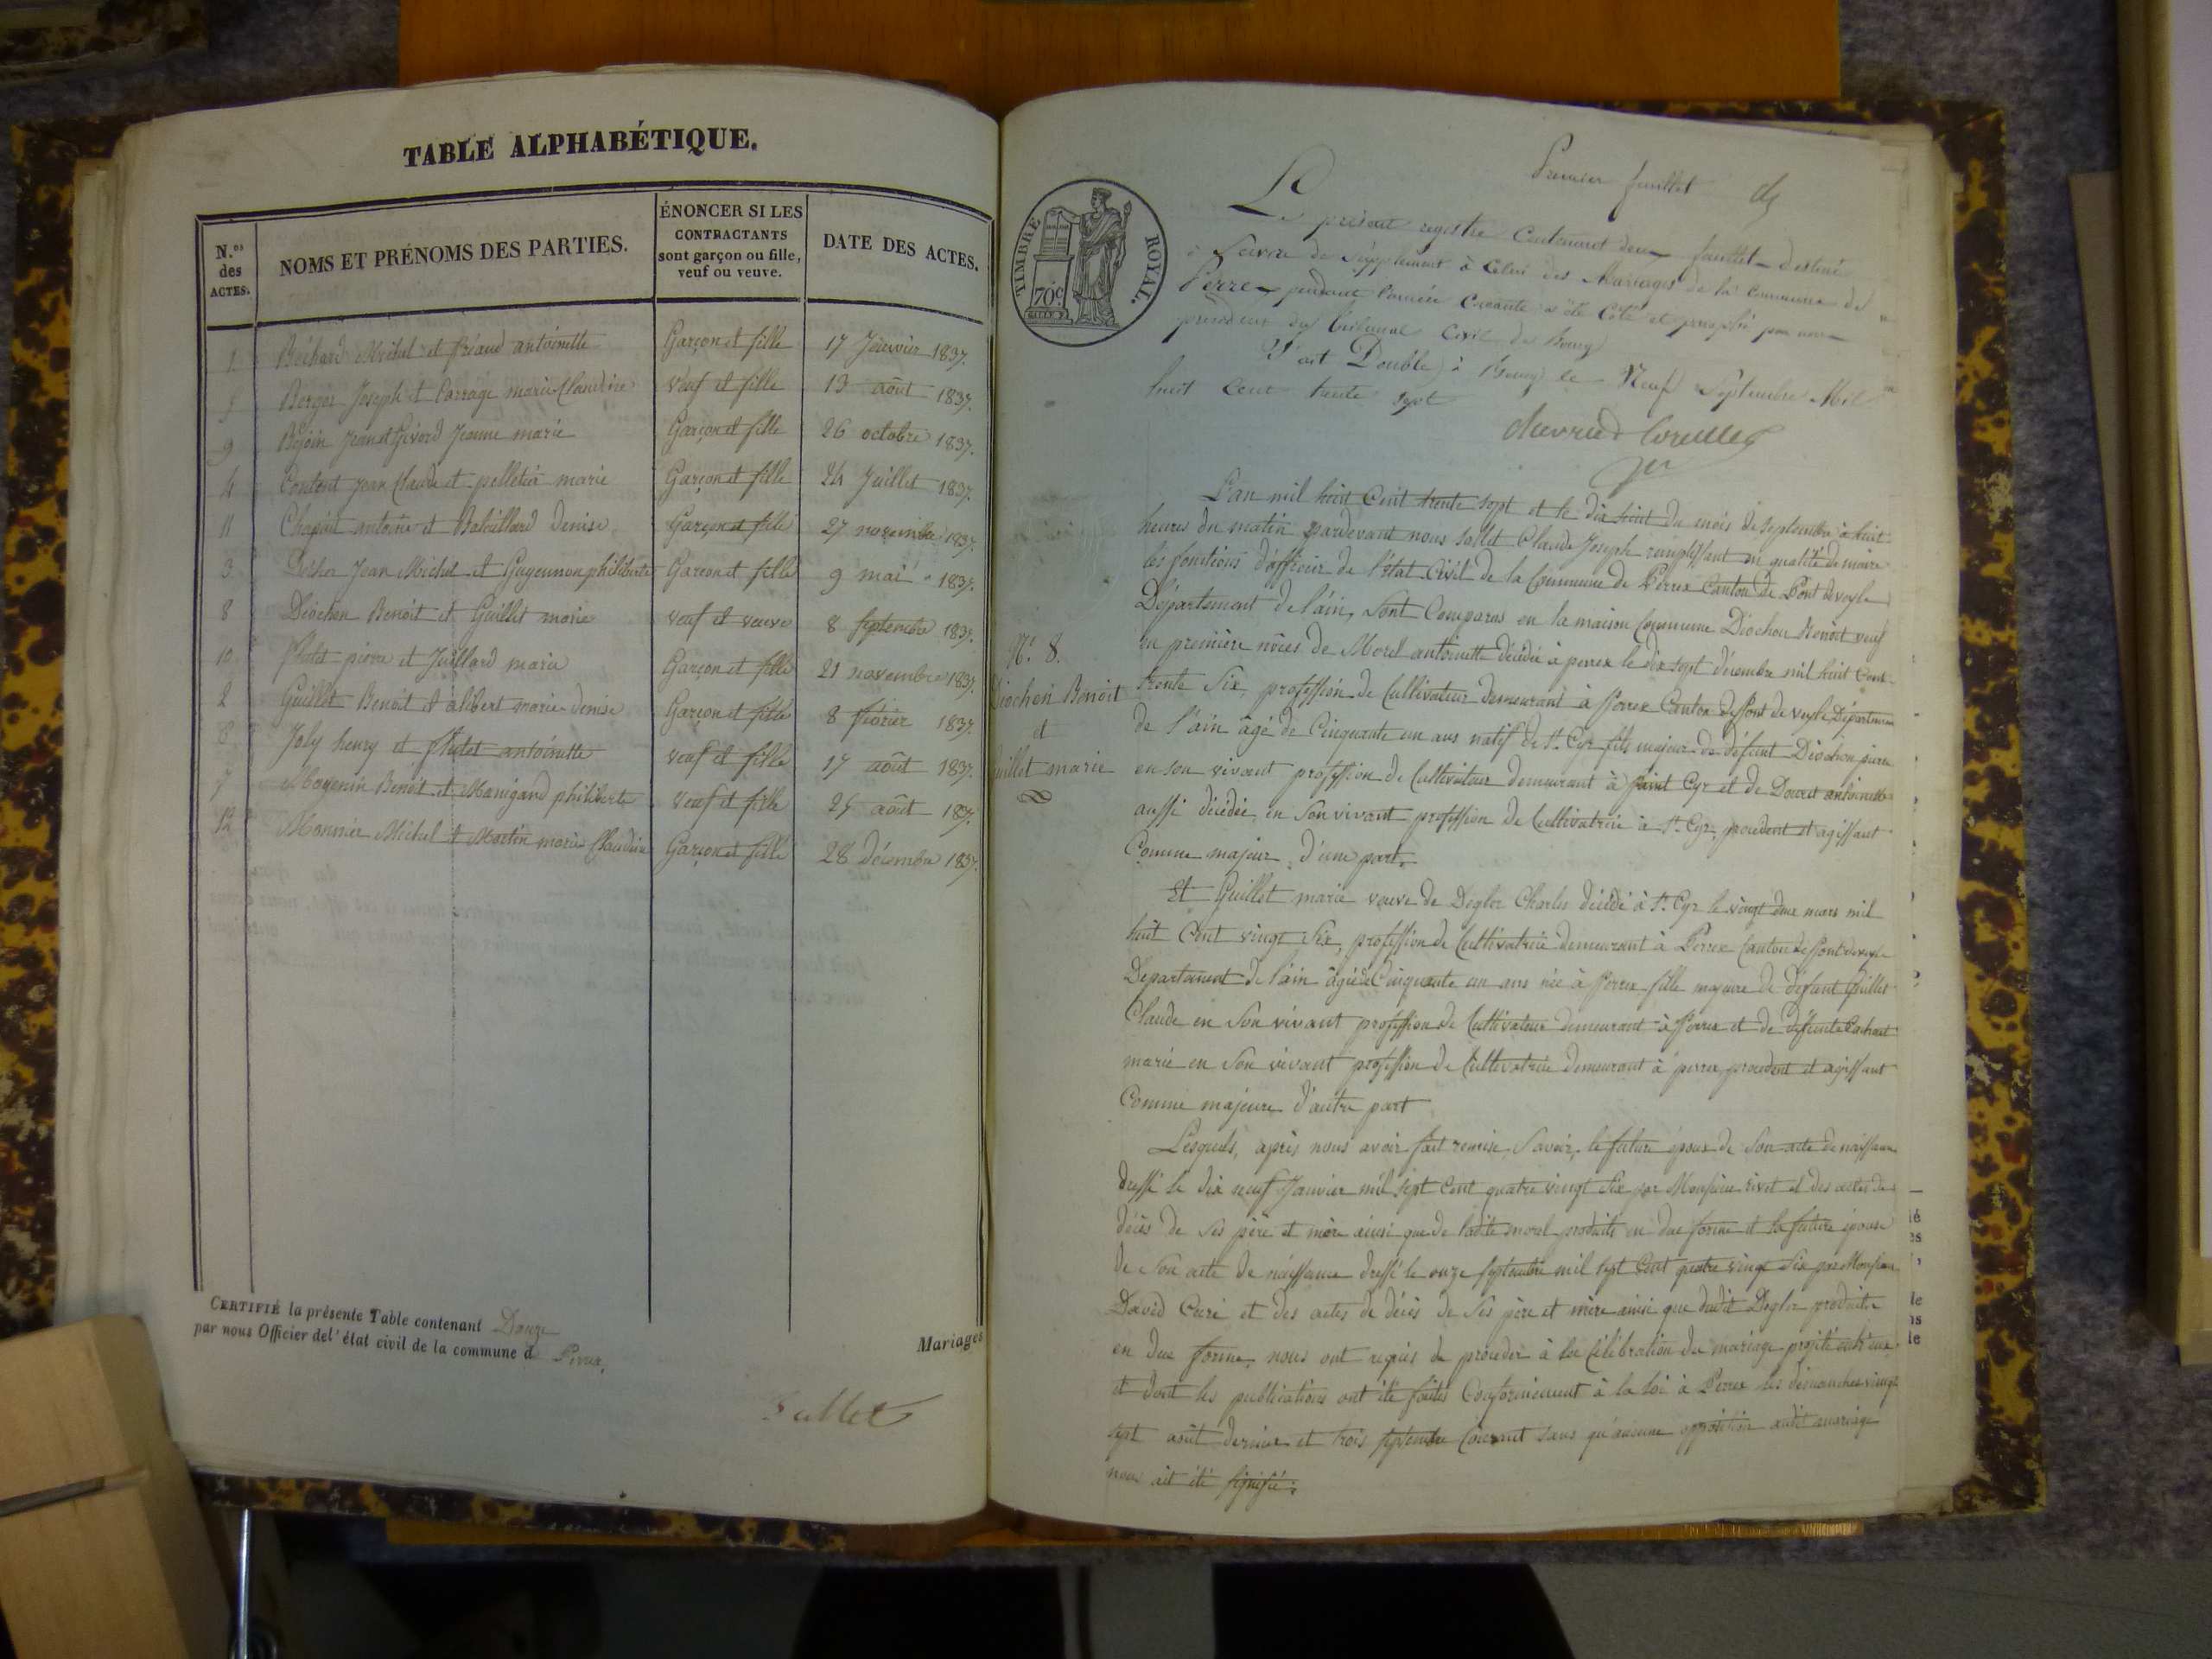 TABLE ALPHABÉTIQUE.
N.os des ACTES.
NOMS ET PRÉNOMS DES PARTIES.
ÉNONCER SI LES CONTRACTANTS sont garçon ou fille, veuf ou veuve.
DATE DES ACTES.
1 Bochard Michel et friaud antoinette Garçon et fille 17 Janvier 1837.
5 Berger Joseph et Carrage marie Claudine veuf et fille 13 août 1837.
9 Bojoin Jean et Givord Jeanne marie Garçon et fille 26 octobre 1837.
4 Contint Jean Claude et pelletier marie Garçon et fille 24 Juillet 1837.
11 Chapuit antoine et Bataillard Denise Garçon et fille 27 novembre 1837.
3 Jean Michel et Guyennon philiberte Garçon et fille 9 mai 1837.
8 Diochon Benoit et Guillet marie veuf et veuve 8 septembre 1837.
10 pierre et Juillard marie Garçon et fille 21 novembre 1837.
2 Guillet Benoit et albert marie denise Garçon et fille 8 février 1837.
6 Joly henry et antoinette veuf et fille 17 août 1837.
7 Moyenin Benoit et Manigand philiberte veuf et fille 25 août 1837.
12 Monnier Michel et Martin marie Claudine Garçon et fille 28 Décembre 1837.
CERTIFIÉ la présente Table contenant Douze
par nous Officier del'état civil de la commune d Perrex.
Mariages
Sallet
Premier feuillet
TIMBRE ROYAL.
70c
Le présent registre Contenant deux feuillets destiné
à Servir de Supplément à Celui des Mariages de la Commune de
Perrex pendant l'année Courante a été Coté et paraphé par nous
président du tribunal Civil de Bourg
Fait Double à Bourg le Neuf Septembre Mil
huit Cent trente sept
L'an mil huit Cent trente sept et le dix huit du mois de septembre à huit
heures du matin pardevant nous Sallet Claude Joseph remplissant en qualité de maire
les fonctions d'officier de l'état Civil de la Commune de Perrex Canton de Pont de veyle
Département de l'ain, sont Comparus en la maison Commune Diochon Benoit veuf
en première nôces de Morel antoinette décédée à perrex le dix sept décembre mil huit Cent
N.o 8.
Diochon Benoit
et
Guillet marie
trente Six, profession de Cultivateur demeurant à Perrex Canton de Pont de veyle Département
de l'ain âgé de Cinquante un ans natif de St. Cyr fils majeur de défunt Diochon pierre
en son vivant profession de Cultivateur demeurant à Saint Cyr et de Doucet antoinette
aussi décédée, en Son vivant profession de Cultivatrice à St. Cyr, procédent et agissant
Comme majeur d'une part,
Et Guillet marie veuve de Degloz Charles décédé à St. Cyr le vingt deux mars mil
huit Cent vingt Six, profession de Cultivatrice demeurant à Perrex Canton de Pont de veyle
Departement de l'ain âgée de Cinquante un ans née à Perrex fille majeure de défunt Guillet
Claude en Son vivant profession de Cultivateur demeurant à Perrex et de défunte
marie en Son vivant profession de Cultivatrice demeurant à perrex, procédent et agissant
Comme majeure d'autre part
Lesquels, après nous avoir fait remise, Savoir, le future époux de Son acte de naissance
dressé le dix neuf Janvier mil sept Cent quatre vingt Six par Monsieur rivet et des actes de
décès de Ses père et mère ainsi que de ladite morel produits en due forme et la future épouse
de Son acte de naissance dressé le onze septembre mil sept Cent quatre vingt Six par Monsieur
David Curé et des actes de décès de Ses père et mère ainsi que dudit Degloz produits
en due forme, nous ont requis de procéder à la Célébration du mariage projeté entr'eux
et dont les publications ont été faites Conformément à la loi à Perrex les dimanches vingt
sept août dernier et trois septembre Courant sans qu'aucune opposition audit mariage
nous ait été signifié.